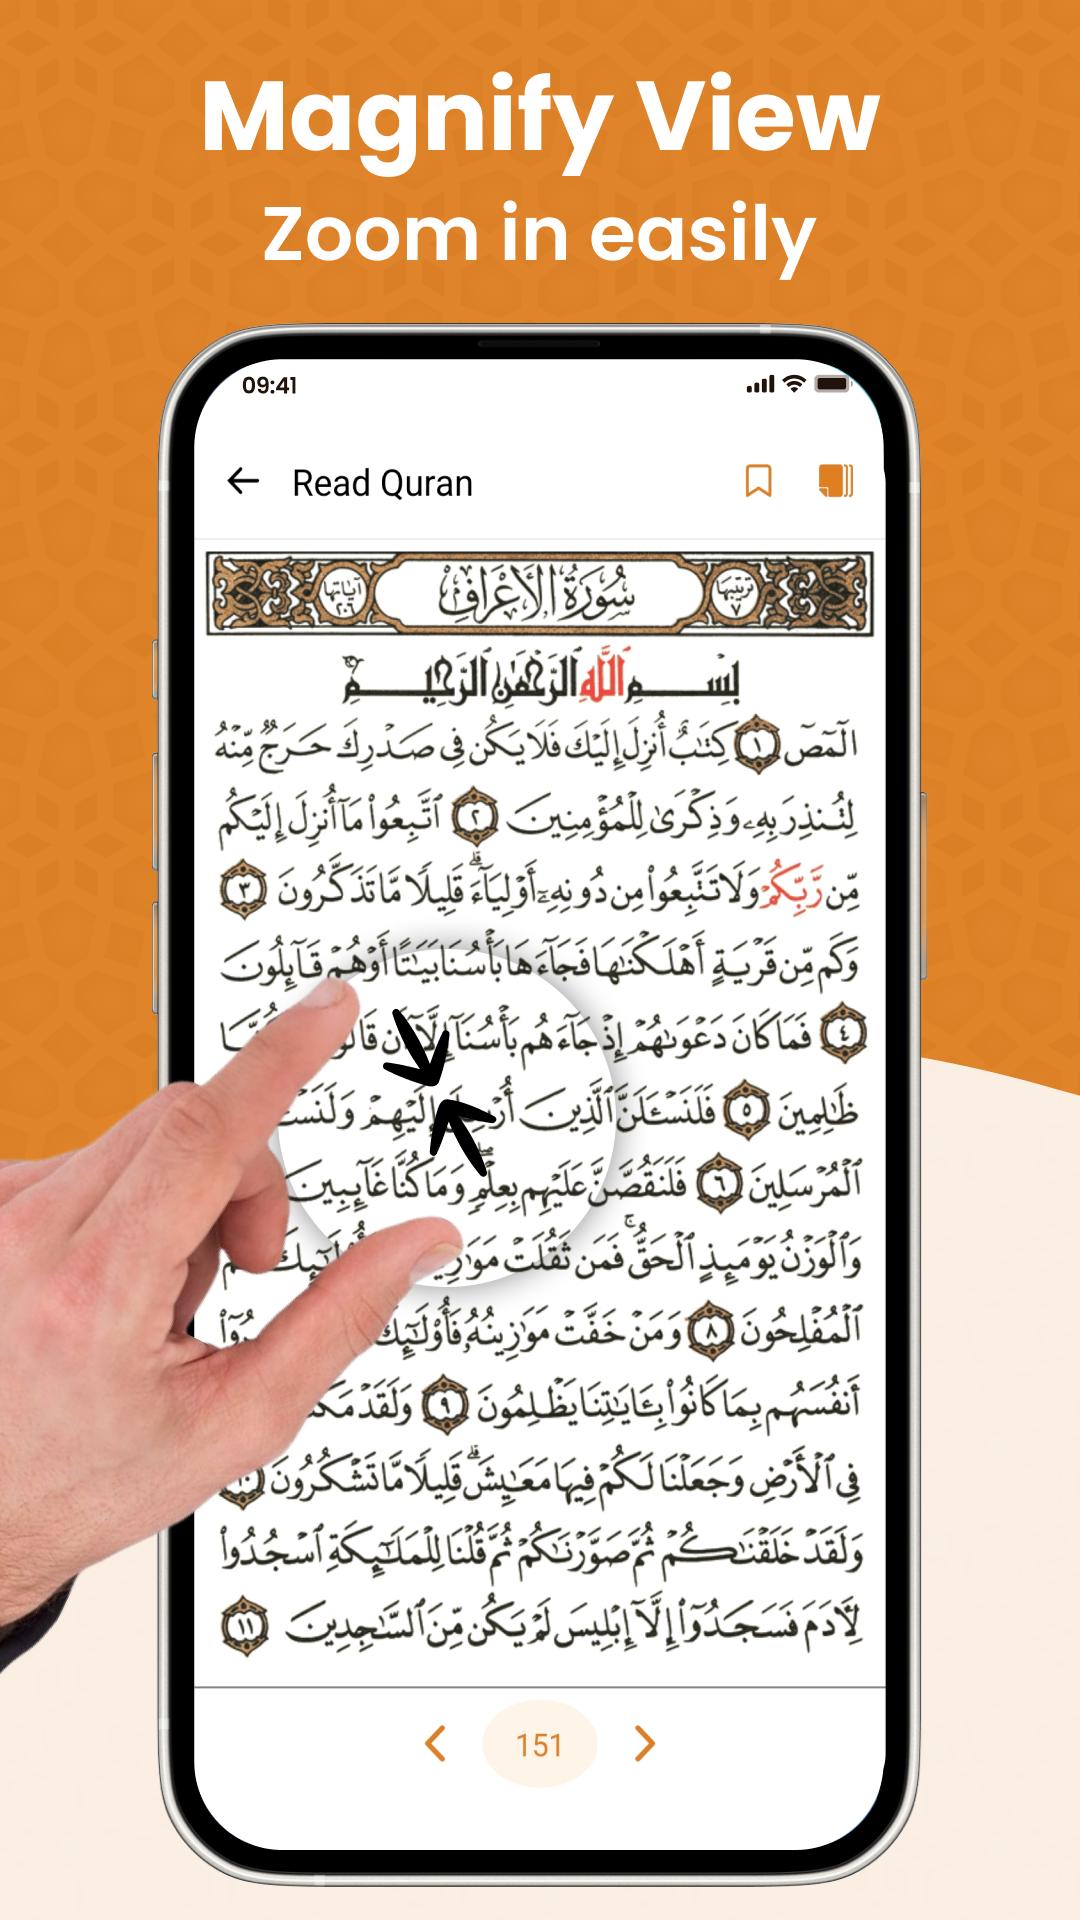 Magnify View
Zoom in easily
09:41
Read Quran
ترتيبها ٧ سُورَةُ الأَعْرَافِ آياتها ٢٠٦
بِسْمِ ٱللَّهِ ٱلرَّحْمَٰنِ ٱلرَّحِيمِ
الٓمٓصٓ ١ كِتَٰبٌ أُنزِلَ إِلَيْكَ فَلَا يَكُن فِى صَدْرِكَ حَرَجٌ مِّنْهُ
لِتُنذِرَ بِهِۦ وَذِكْرَىٰ لِلْمُؤْمِنِينَ ٢ ٱتَّبِعُوا۟ مَآ أُنزِلَ إِلَيْكُم
مِّن رَّبِّكُمْ وَلَا تَتَّبِعُوا۟ مِن دُونِهِۦٓ أَوْلِيَآءَ ۗ قَلِيلًا مَّا تَذَكَّرُونَ ٣
وَكَم مِّن قَرْيَةٍ أَهْلَكْنَٰهَا فَجَآءَهَا بَأْسُنَا بَيَٰتًا أَوْ هُمْ قَآئِلُونَ
٤ فَمَا كَانَ دَعْوَىٰهُمْ إِذْ جَآءَهُم بَأْسُنَآ إِلَّآ أَن
ظَٰلِمِينَ ٥ فَلَنَسْـَٔلَنَّ ٱلَّذِينَ إِلَيْهِمْ
ٱلْمُرْسَلِينَ ٦ فَلَنَقُصَّنَّ عَلَيْهِم بِعِلْمٍ ۖ وَمَا كُنَّا غَآئِبِينَ
وَٱلْوَزْنُ يَوْمَئِذٍ ٱلْحَقُّ ۚ فَمَن ثَقُلَتْ
ٱلْمُفْلِحُونَ ٨ وَمَنْ خَفَّتْ مَوَٰزِينُهُۥ فَأُو۟لَٰٓئِكَ
أَنفُسَهُم بِمَا كَانُوا۟ بِـَٔايَٰتِنَا يَظْلِمُونَ ٩ وَلَقَدْ
فِى ٱلْأَرْضِ وَجَعَلْنَا لَكُمْ فِيهَا مَعَٰيِشَ ۗ قَلِيلًا مَّا تَشْكُرُونَ ١٠
وَلَقَدْ خَلَقْنَٰكُمْ ثُمَّ صَوَّرْنَٰكُمْ ثُمَّ قُلْنَا لِلْمَلَٰٓئِكَةِ ٱسْجُدُوا۟
لِـَٔادَمَ فَسَجَدُوٓا۟ إِلَّآ إِبْلِيسَ لَمْ يَكُن مِّنَ ٱلسَّٰجِدِينَ ١١
151